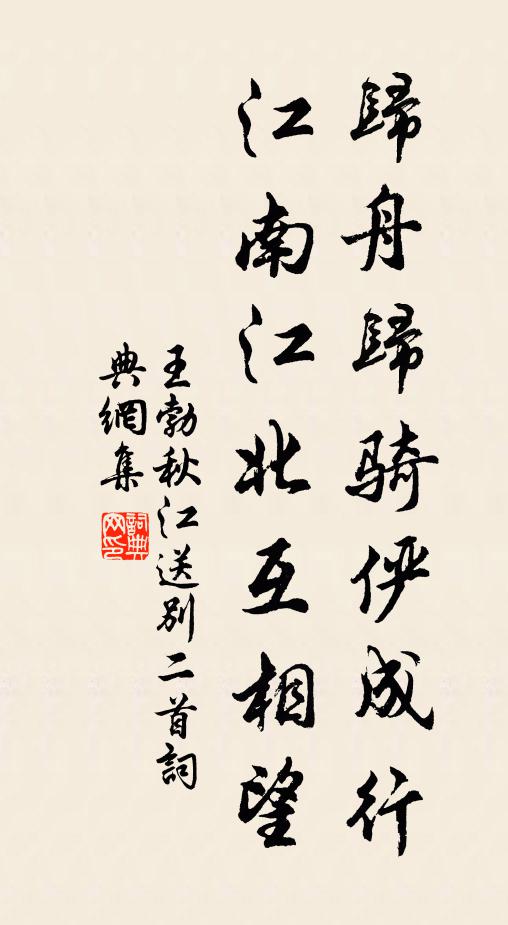 歸舟歸骑俨成行
江南江北互相望
王勃秋江送别二首詞
典網集
詞典网印